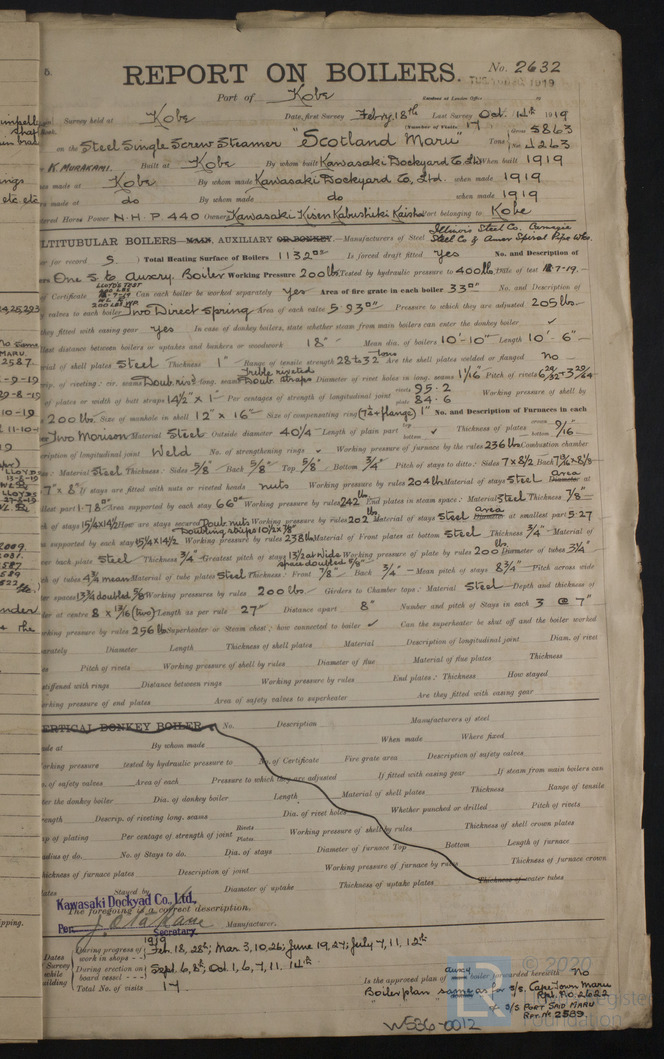 REPORT ON BOILERS.
No. 2632
Port of Kobe
TUE 1919
Survey held at Kobe Date, first Survey Febry 18th Last Survey Oct. 14th 1919
(Number of Visits 17)
on the Steel Single Screw Steamer "Scotland Maru" Tons Gross 5863 Net 4263
K. MURAKAMI. Built at Kobe By whom built Kawasaki Dockyard Co Ltd When built 1919
made at Kobe By whom made Kawasaki Dockyard Co, Ltd. when made 1919
made at do By whom made do when made 1919
Horse Power N.H.P. 440 Owners Kawasaki Kisen Kabushiki Kaisha Port belonging to Kobe
MULTITUBULAR BOILERS MAIN, AUXILIARY OR DONKEY.—Manufacturers of Steel Illinois Steel Co. Carnegie Steel Co & Amer Spiral Pipe Wks.
for record S. Total Heating Surface of Boilers 1132 Is forced draft fitted yes No. and Description of
One S to Auxry. Boiler Working Pressure 200 lbs Tested by hydraulic pressure to 400 lbs Date of test 7-19.
Certificate Can each boiler be worked separately yes Area of fire grate in each boiler 33 No. and Description of
valves to each boiler Two Direct spring Area of each valve 5.93 Pressure to which they are adjusted 205 lbs.
they fitted with easing gear yes In case of donkey boilers, state whether steam from main boilers can enter the donkey boiler ✓
distance between boilers or uptakes and bunkers or woodwork 18" Mean dia. of boilers 10'-10" Length 10'-6"
of shell plates Steel Thickness 1" Range of tensile strength 28 to 32 tons Are the shell plates welded or flanged no
of riveting: cir. seams Doub. rivd long. seams Treble riveted Doub Straps Diameter of rivet holes in long. seams 1 1/16 Pitch of rivets
of plates or width of butt straps 14 1/2" x 1" Per centages of strength of longitudinal joint rivets 95.2 plate 84.6 Working pressure of shell by
200 lbs. Size of manhole in shell 12" x 16" Size of compensating ring (7 1/2 + flange) 1" No. and Description of Furnaces in each
Two Morison Material Steel Outside diameter 40 1/4 Length of plain part top bottom ✓ Thickness of plates crown bottom 9/16"
description of longitudinal joint Weld No. of strengthening rings ✓ Working pressure of furnace by the rules 236 lbs Combustion chamber
Material Steel Thickness: Sides 5/8" Back 5/8" Top 5/8" Bottom 3/4" Pitch of stays to ditto: Sides 7 x 8 1/2
7" x 8" If stays are fitted with nuts or riveted heads nuts Working pressure by rules 204 lbs Material of stays Steel Area at
part 1.78 Area supported by each stay 66 Working pressure by rules 242 lbs End plates in steam space: Material Steel Thickness 7/8"
of stays 15 1/4 x 14 1/2 How are stays secured Doub nuts Working pressure by rules 202 lbs Material of stays Steel Area at smallest part 5.27
Doubling strips 10 1/2 x 7/8"
supported by each stay 15 1/4 x 14 1/2 Working pressure by rules 238 lbs Material of Front plates at bottom Steel Thickness 3/4" Material of
back plate Steel Thickness 3/4" Greatest pitch of stays 13 1/2 at wide space doubled 5/8" Working pressure of plate by rules 200 lbs Diameter of tubes 3 1/4"
of tubes 4 3/4 mean Material of tube plates Steel Thickness: Front 7/8" Back 3/4" Mean pitch of stays 8 3/4" Pitch across wide
spaces 13 3/4 doubled 5/8 Working pressures by rules 200 lbs Girders to Chamber tops: Material Steel Depth and thickness of
at centre 8 x 13/16 (two) Length as per rule 27" Distance apart 8" Number and pitch of Stays in each 3 @ 7"
Working pressure by rules 256 lbs Superheater or Steam chest; how connected to boiler ✓ Can the superheater be shut off and the boiler worked
separately Diameter Length Thickness of shell plates Material Description of longitudinal joint Diam. of rivet
Pitch of rivets Working pressure of shell by rules Diameter of flue Material of flue plates Thickness
stiffened with rings Distance between rings Working pressure by rules End plates: Thickness How stayed
working pressure of end plates Area of safety valves to superheater Are they fitted with easing gear
VERTICAL DONKEY BOILER No. Description Manufacturers of steel
made at By whom made When made Where fixed
Working pressure tested by hydraulic pressure to No. of Certificate Fire grate area Description of safety valves
of safety valves Area of each Pressure to which they are adjusted If fitted with easing gear If steam from main boilers can
enter the donkey boiler Dia. of donkey boiler Length Material of shell plates Thickness Range of tensile
strength Descrip. of riveting long. seams Dia. of rivet holes Whether punched or drilled Pitch of rivets
Lap of plating Per centage of strength of joint Rivets Plates Working pressure of shell by rules Thickness of shell crown plates
Radius of do. No. of Stays to do. Dia. of stays Diameter of furnace Top Bottom Length of furnace
Thickness of furnace plates Description of joint Working pressure of furnace by rules Thickness of furnace crown
plates Stayed by Diameter of uptake Thickness of uptake plates Thickness of water tubes
Kawasaki Dockyad Co., Ltd.,
The foregoing is a correct description.
Per. Secretary Manufacturer.
1919
Dates of Survey while building
During progress of work in shops - - Feb. 18, 28th; Mar 3, 10, 26; June 19, 27; July 7, 11, 12th
During erection on board vessel - - - Sept. 6, 8th; Oct 1, 6, 7, 11, 14th
Total No. of visits 17
Is the approved plan of auxy boiler forwarded herewith No
Boiler plan same as for S/S. Cape Town Maru Rpt. No. 2622
S/S PORT SAID MARU
RPT. No 2589.
W536-0012
© 2020
LR
Foundation